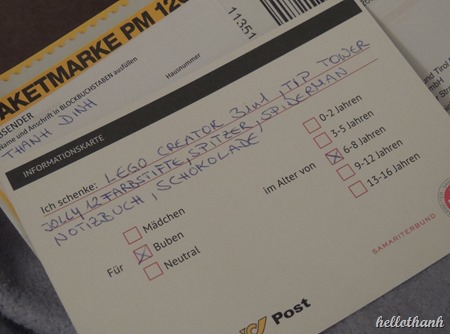 PAKETMARKE PM 12
11351
ABSENDER
Name und Anschrift in BLOCKBUCHSTABEN ausfüllen
Hausnummer
THANH DINH
INFORMATIONSKARTE
Ich schenke: LEGO CREATOR 3in1, TIP TOWER
JOLLY 12 FARBSTIFTE, SPITZER, SPIDERMAN
NOTIZBUCH, SCHOKOLADE
Für
Mädchen
Buben
Neutral
im Alter von
0-2 Jahren
3-5 Jahren
6-8 Jahren
9-12 Jahren
13-16 Jahren
SAMARITERBUND
Post
und Tirol
hellothanh